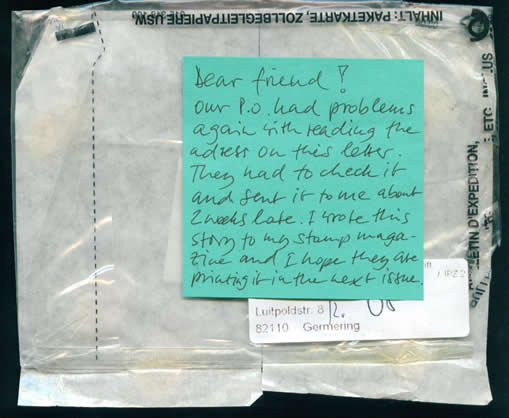 INHALT: PAKETKARTE, ZOLLBEGLEITPAPIERE USW.
Dear friend!
Our P.O. had problems
again with reading the
adress on this letter.
They had to check it
and sent it to me about
2 weeks late. I wrote this
story to my stamp maga-
zine and I hope they are
printing it in the next issue.
Luitpoldstr. 8
82110 Germering
D'EXPEDITION,
ETC